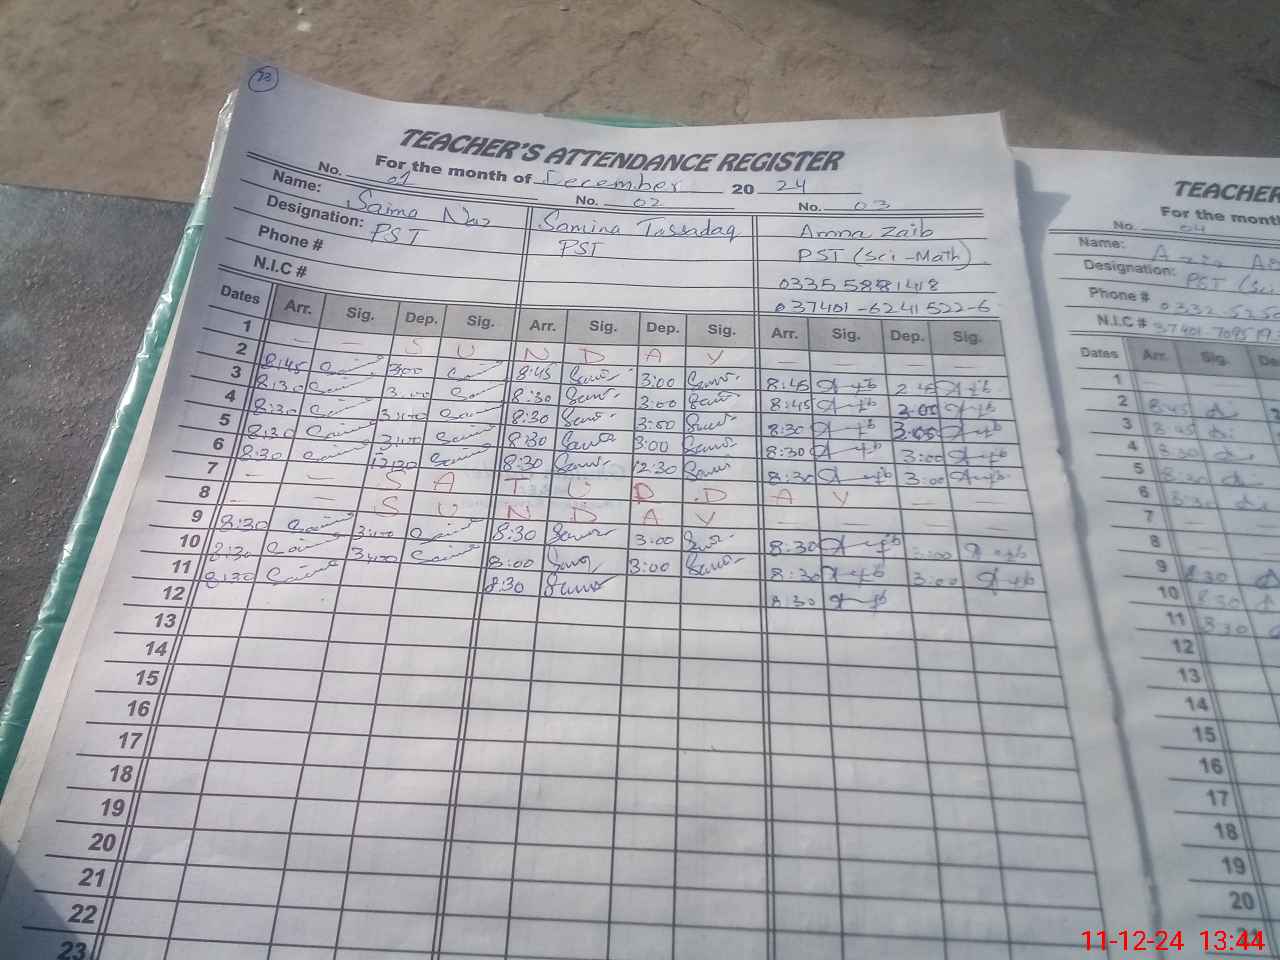 73
TEACHER'S ATTENDANCE REGISTER
For the month of December 2024
No. 01 No. 02 No. 03
Name: Saima Naz Samina Tassadaq Amna Zaib
Designation: PST PST PST (Sci-Math)
Phone # 0335 5881418
N.I.C # 037401-6241522-6
Dates Arr. Sig. Dep. Sig. Arr. Sig. Dep. Sig. Arr. Sig. Dep. Sig.
1 — — S U N D A Y — — — —
2 8:45 3:00 8:45 3:00 8:45 2:45
3 8:30 3:00 8:30 3:00 8:45 3:00
4 8:30 3:00 8:30 3:00 8:30 3:05
5 8:30 3:00 8:30 3:00 8:30 3:00
6 8:30 12:30 8:30 12:30 8:30 3:00
7 — — S A T U D . D A Y — —
8 — — S U N D A Y — — — —
9 8:30 3:00 8:30 3:00 8:30 3:00
10 8:30 3:00 8:00 3:00 8:30 3:00
11 8:30 8:30 8:30
12
13
14
15
16
17
18
19
20
21
22
23
TEACHER
For the month
No. 04
Name:
Designation: PST (Sci
Phone #
N.I.C #
Dates Arr. Sig.
1
2 8:45
3 8:45
4 8:30
5 8:30
6 8:30
7
8
9 8:30
10 8:30
11 8:30
12
13
14
15
16
17
18
19
20
21
11-12-24 13:44